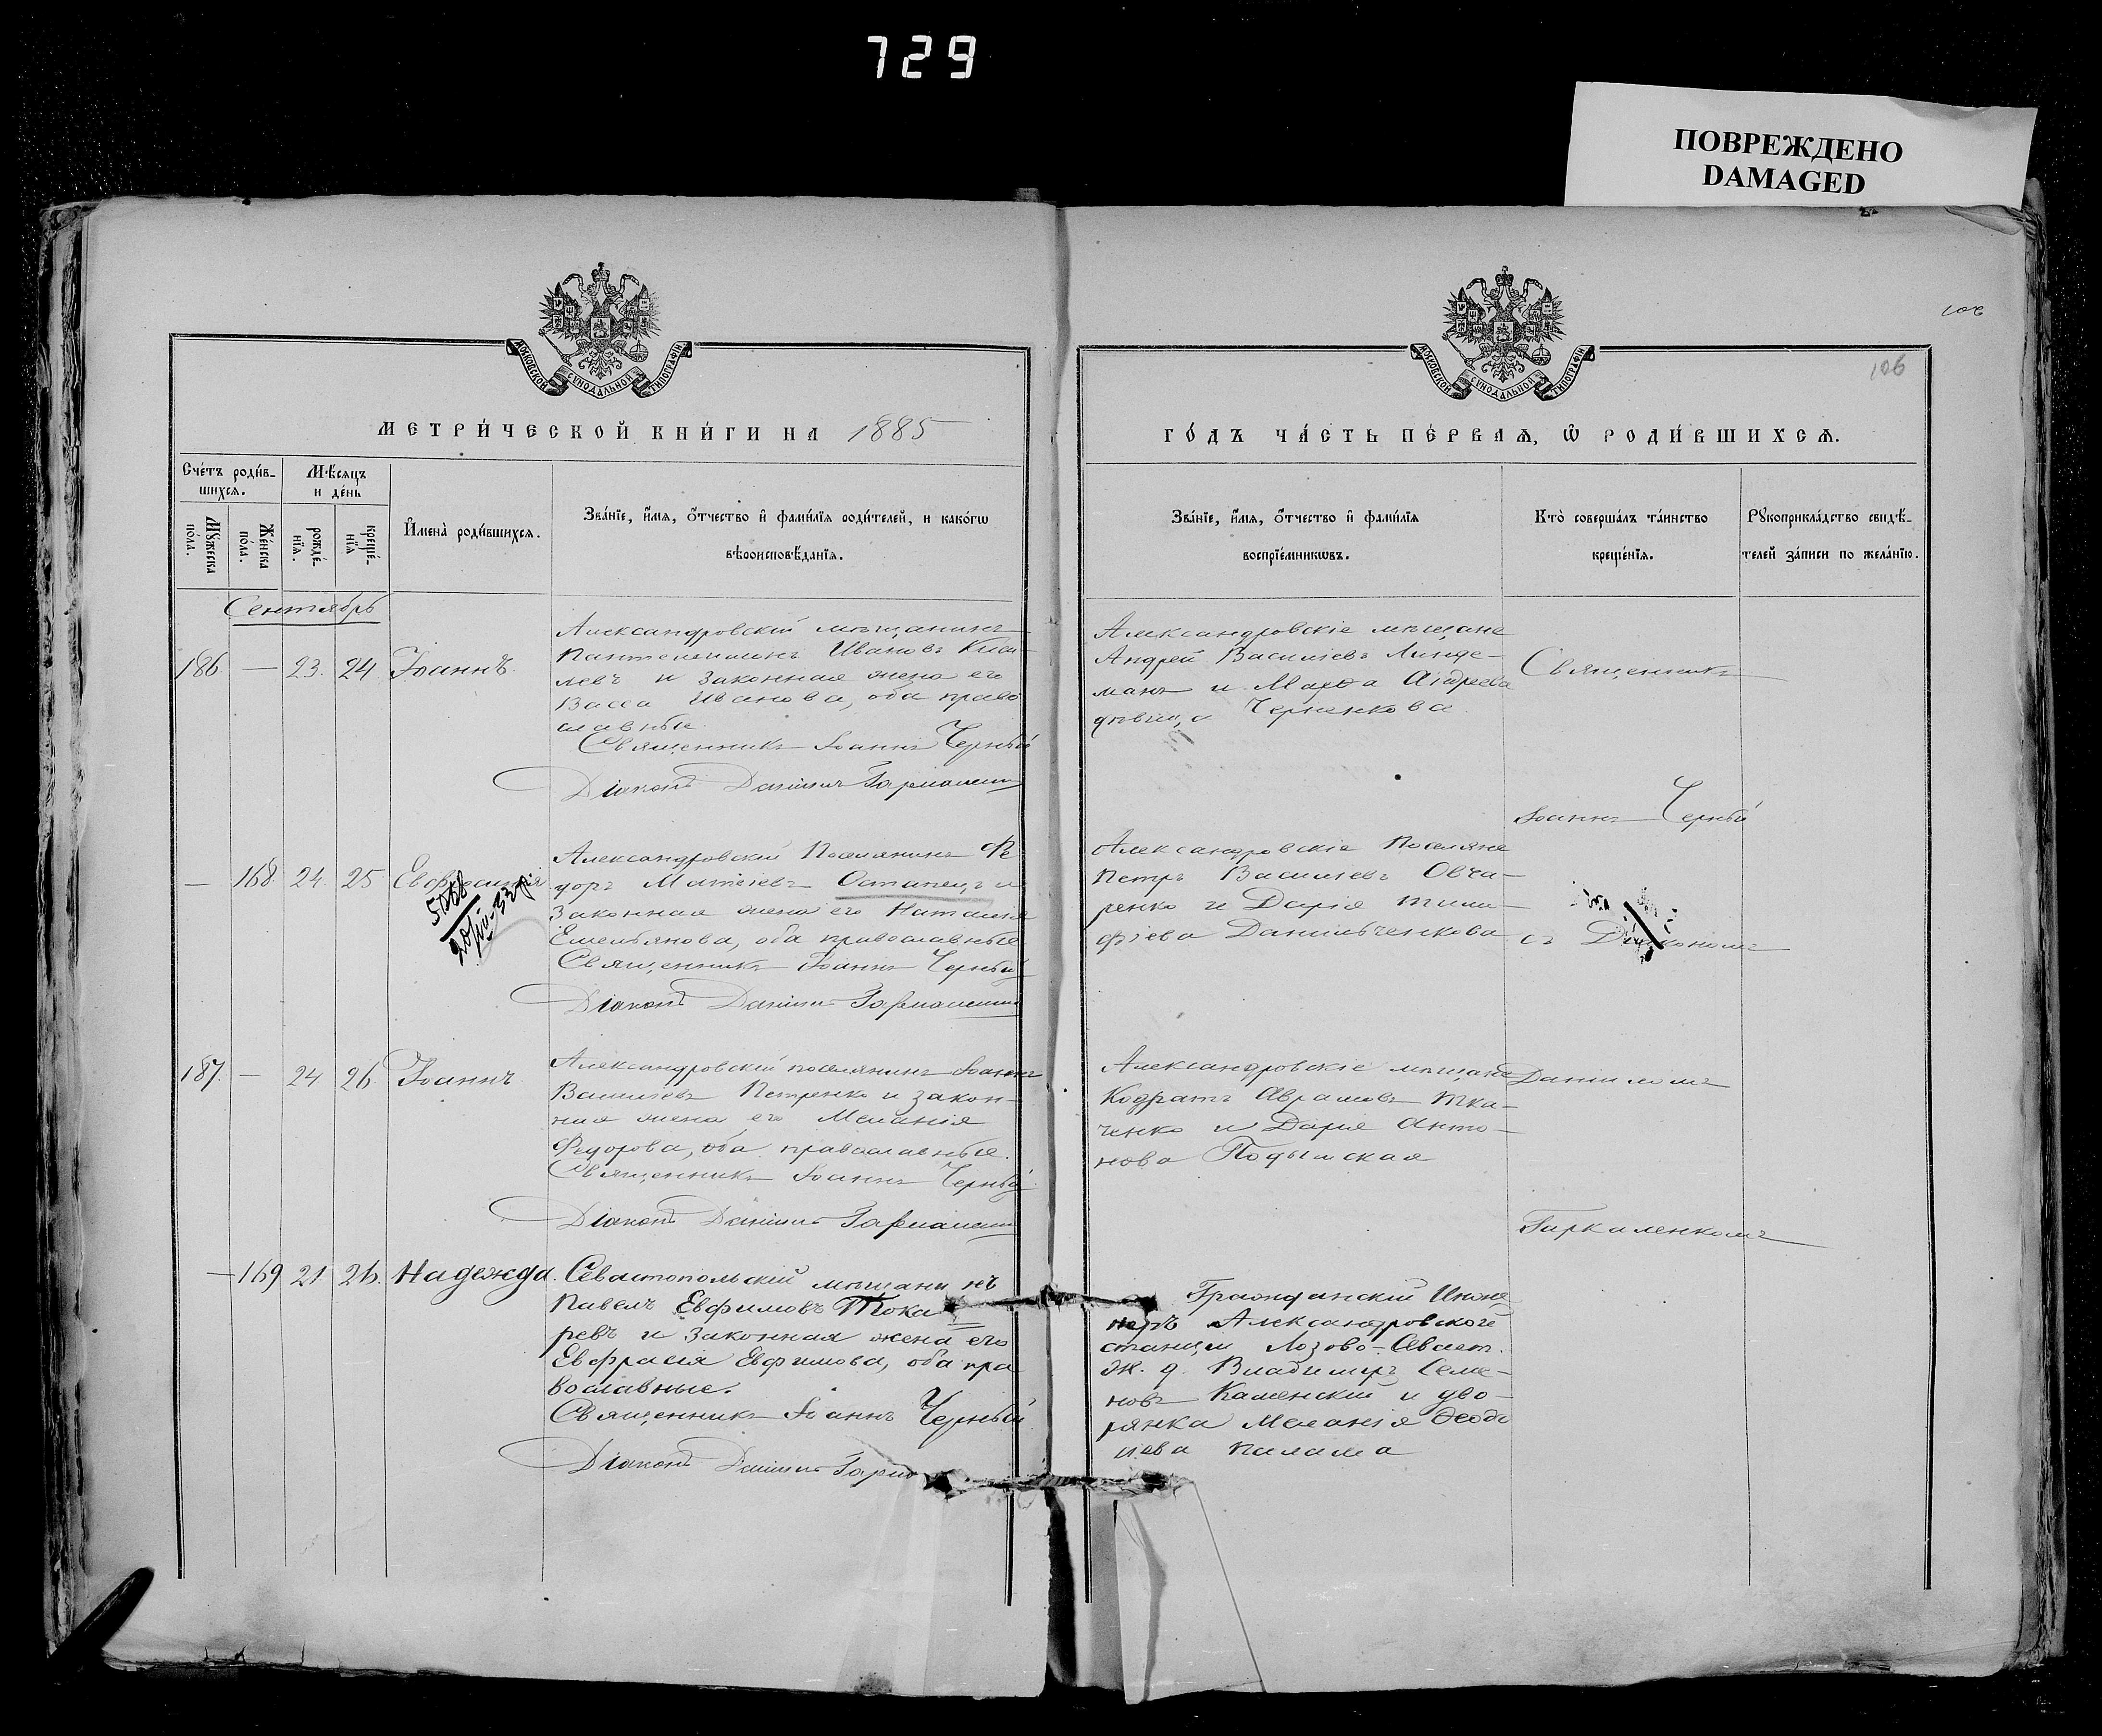 729
ПОВРЕЖДЕНО
DAMAGED
106
106
МОСКОВСКОЙ СѴНОДАЛЬНОЙ ТИПОГРАФІИ
МОСКОВСКОЙ СѴНОДАЛЬНОЙ ТИПОГРАФІИ
МЕТРИ́ЧЕСКОЙ КНИ́ГИ НА 1885
ГО́ДЪ ЧА́СТЬ ПЕ́РВАѦ, Ѡ РОДИ́ВШИХСѦ.
Сче́тъ роди́в-
шихсѧ.
Мѣ́сѧцъ
и де́нь
Мꙋ́жеска
по́ла.
Же́нска
по́ла.
рожде́-
нїѧ.
креще́-
нїѧ
И҆мена̀ роди́вшихсѧ.
Зва́нїе, и҆́мѧ, ѻ҆́тчество и҆ фами́лїѧ роди́телей, и како́гѡ
вѣроисповѣ́данїѧ.
Зва́нїе, и҆́мѧ, ѻ҆́тчество и҆ фами́лїѧ
воспрїе́мникѡвъ.
Кто̀ соверша́лъ та́инство
креще́нїѧ.
Рꙋкоприкла́дство свидѣ́-
телей за́писи по жела́нїю.
Сентябрь
186 — 23. 24. Іоаннъ.
Александровскій мѣщанинъ
Пантелеимонъ Ивановъ
левъ и законная жена его
Васса Иванова, оба право
славные.
Священникъ Іоаннъ Черный
Діаконъ Даніилъ
Александровскіе мѣщане
Андрей Васильевъ Линде-
манъ и Марѳа Андреева
дѣвица Черненкова
Священникъ
Іоаннъ Черный
— 168. 24. 25 Евфросинія
Александровскій Поселянинъ Ѳе
доръ Матвѣевъ Остапецъ и
законная жена его Наталія
Емельянова, оба православные
Священникъ Іоаннъ Черный
Діаконъ Даніилъ
Александровскіе Поселяне
Петръ Васильевъ Овча-
ренко и Дарія Тимо-
фіева Данильченкова
съ Діакономъ
187. — 24 26. Іоаннъ
Александровскій поселянинъ Іоаннъ
Васильевъ Петренко и закон-
ная жена его Меланія
Ѳедорова, оба православные.
Священникъ Іоаннъ Черный
Діаконъ Даніилъ
Александровскіе мѣщане
Кодратъ Аврамовъ Тка-
ченко и Дарія Анто-
нова Подымская
Даніиломъ
Гаркаленкомъ
— 169 21 26. Надежда.
Севастопольскій мѣщанинъ
Павелъ Евфимовъ Тока
ревъ и законная жена его
Евфрасія Евфимова, оба пра
вославные.
Священникъ Іоаннъ Черный
Діаконъ Даніилъ
Гражданскій Инже
неръ Александровской
станціи Лозово-Севаст.
Ж. д. Владимиръ Семе-
новъ Каменскій и дво-
рянка Меланія Ѳеодо
Палама